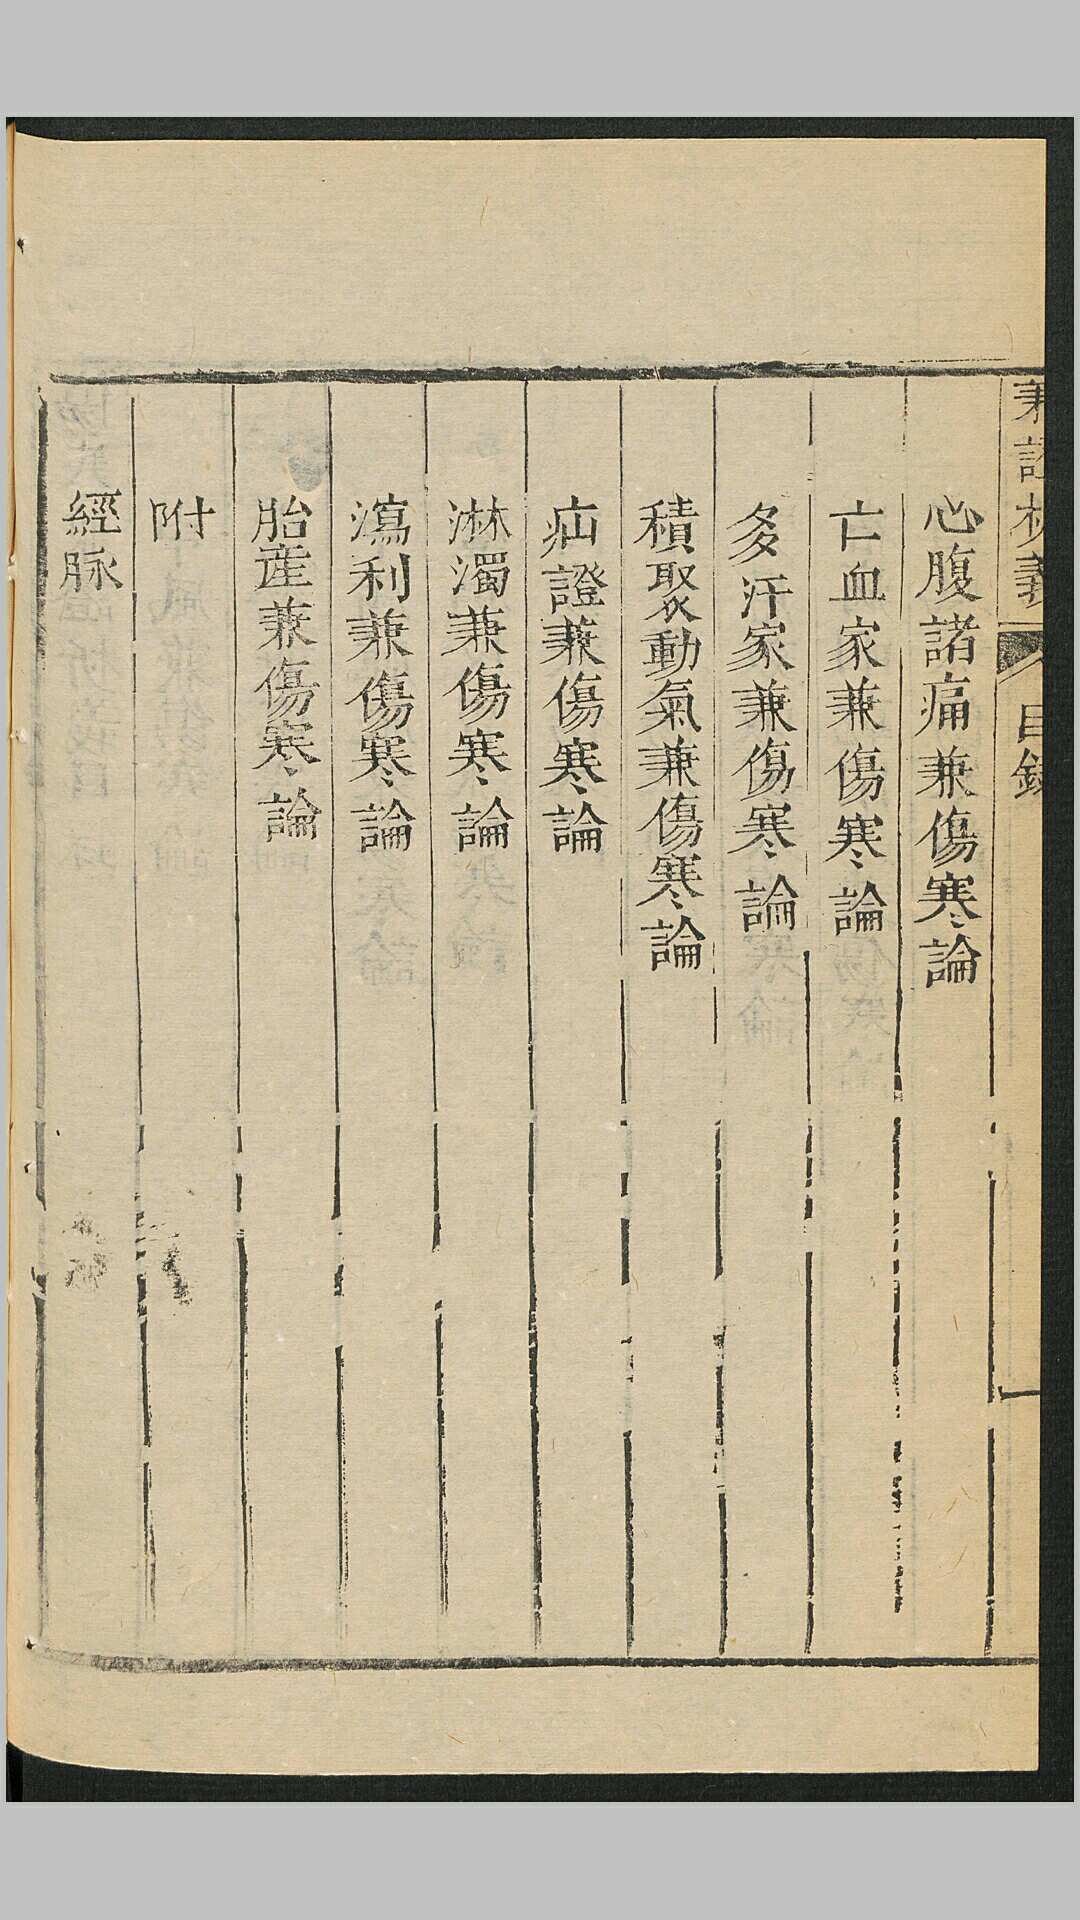 兼證析義
目錄
一
心腹諸痛兼傷寒論
亡血家兼傷寒論
多汗家兼傷寒論
積聚動氣兼傷寒論
疝證兼傷寒論
淋濁兼傷寒論
瀉利兼傷寒論
胎產兼傷寒論
附
經脉